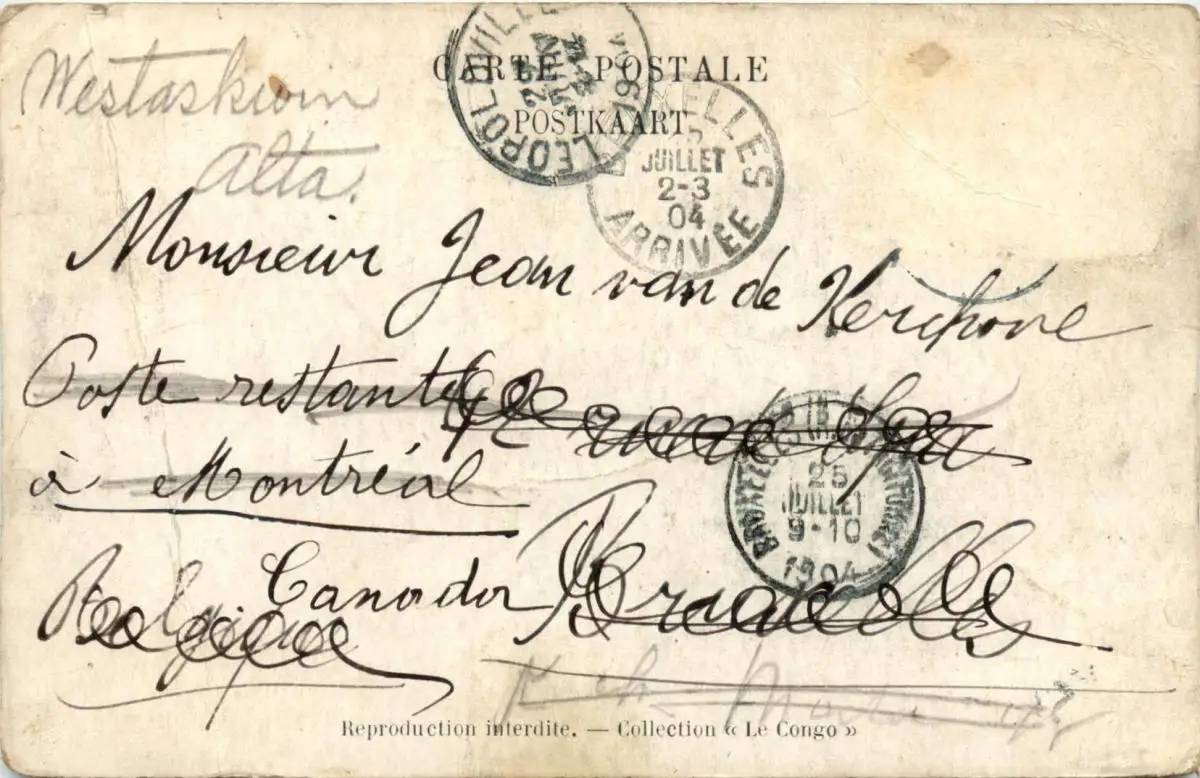 CARTE POSTALE
POSTKAART
Westaskiwin
Alta.
LEOPOLDVILLE
BRUXELLES
JUILLET
2-3
04
ARRIVÉE
Monsieur Jean van de Kerchove
Poste restante
à Montréal
Canada
Bruxelles
Belgique
BRUXELLES
25
JUILLET
9-10
1904
Reproduction interdite. — Collection « Le Congo »